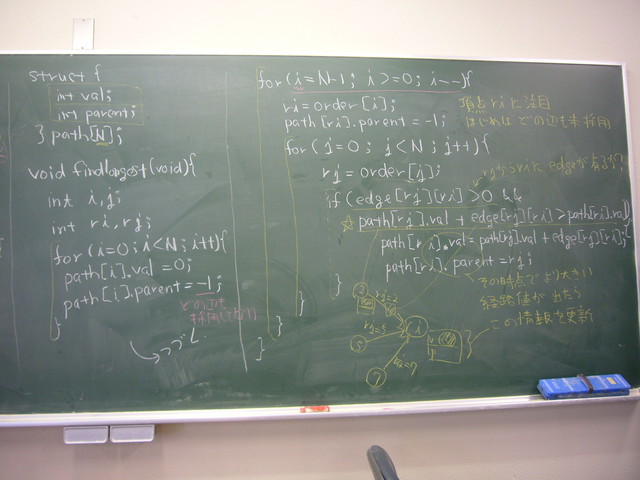 struct {
int val;
int parent;
} path[N];
void findlongest(void){
int i,j;
int ri,rj;
for(i=0;i<N;i++){
path[i].val=0;
path[i].parent=-1;
}
つづく
for(i=N-1; i>=0; i--){
ri=order[i];
頂点riに注目
path[ri].parent=-1;
はじめはどの辺も未採用
for(j=0; j<N; j++){
rj=order[j];
rjからriにedgeが有るか?
if(edge[rj][ri]>0 &&
☆ path[rj].val + edge[rj][ri]>path[ri].val){
path[ri].val=path[rj].val+edge[rj][ri];
path[ri].parent=rj;
}
その時点でより大きい
経路値が出たら
この情報を更新
}
}
}
2
rj=2
i
5
rj=5
7
rj=7